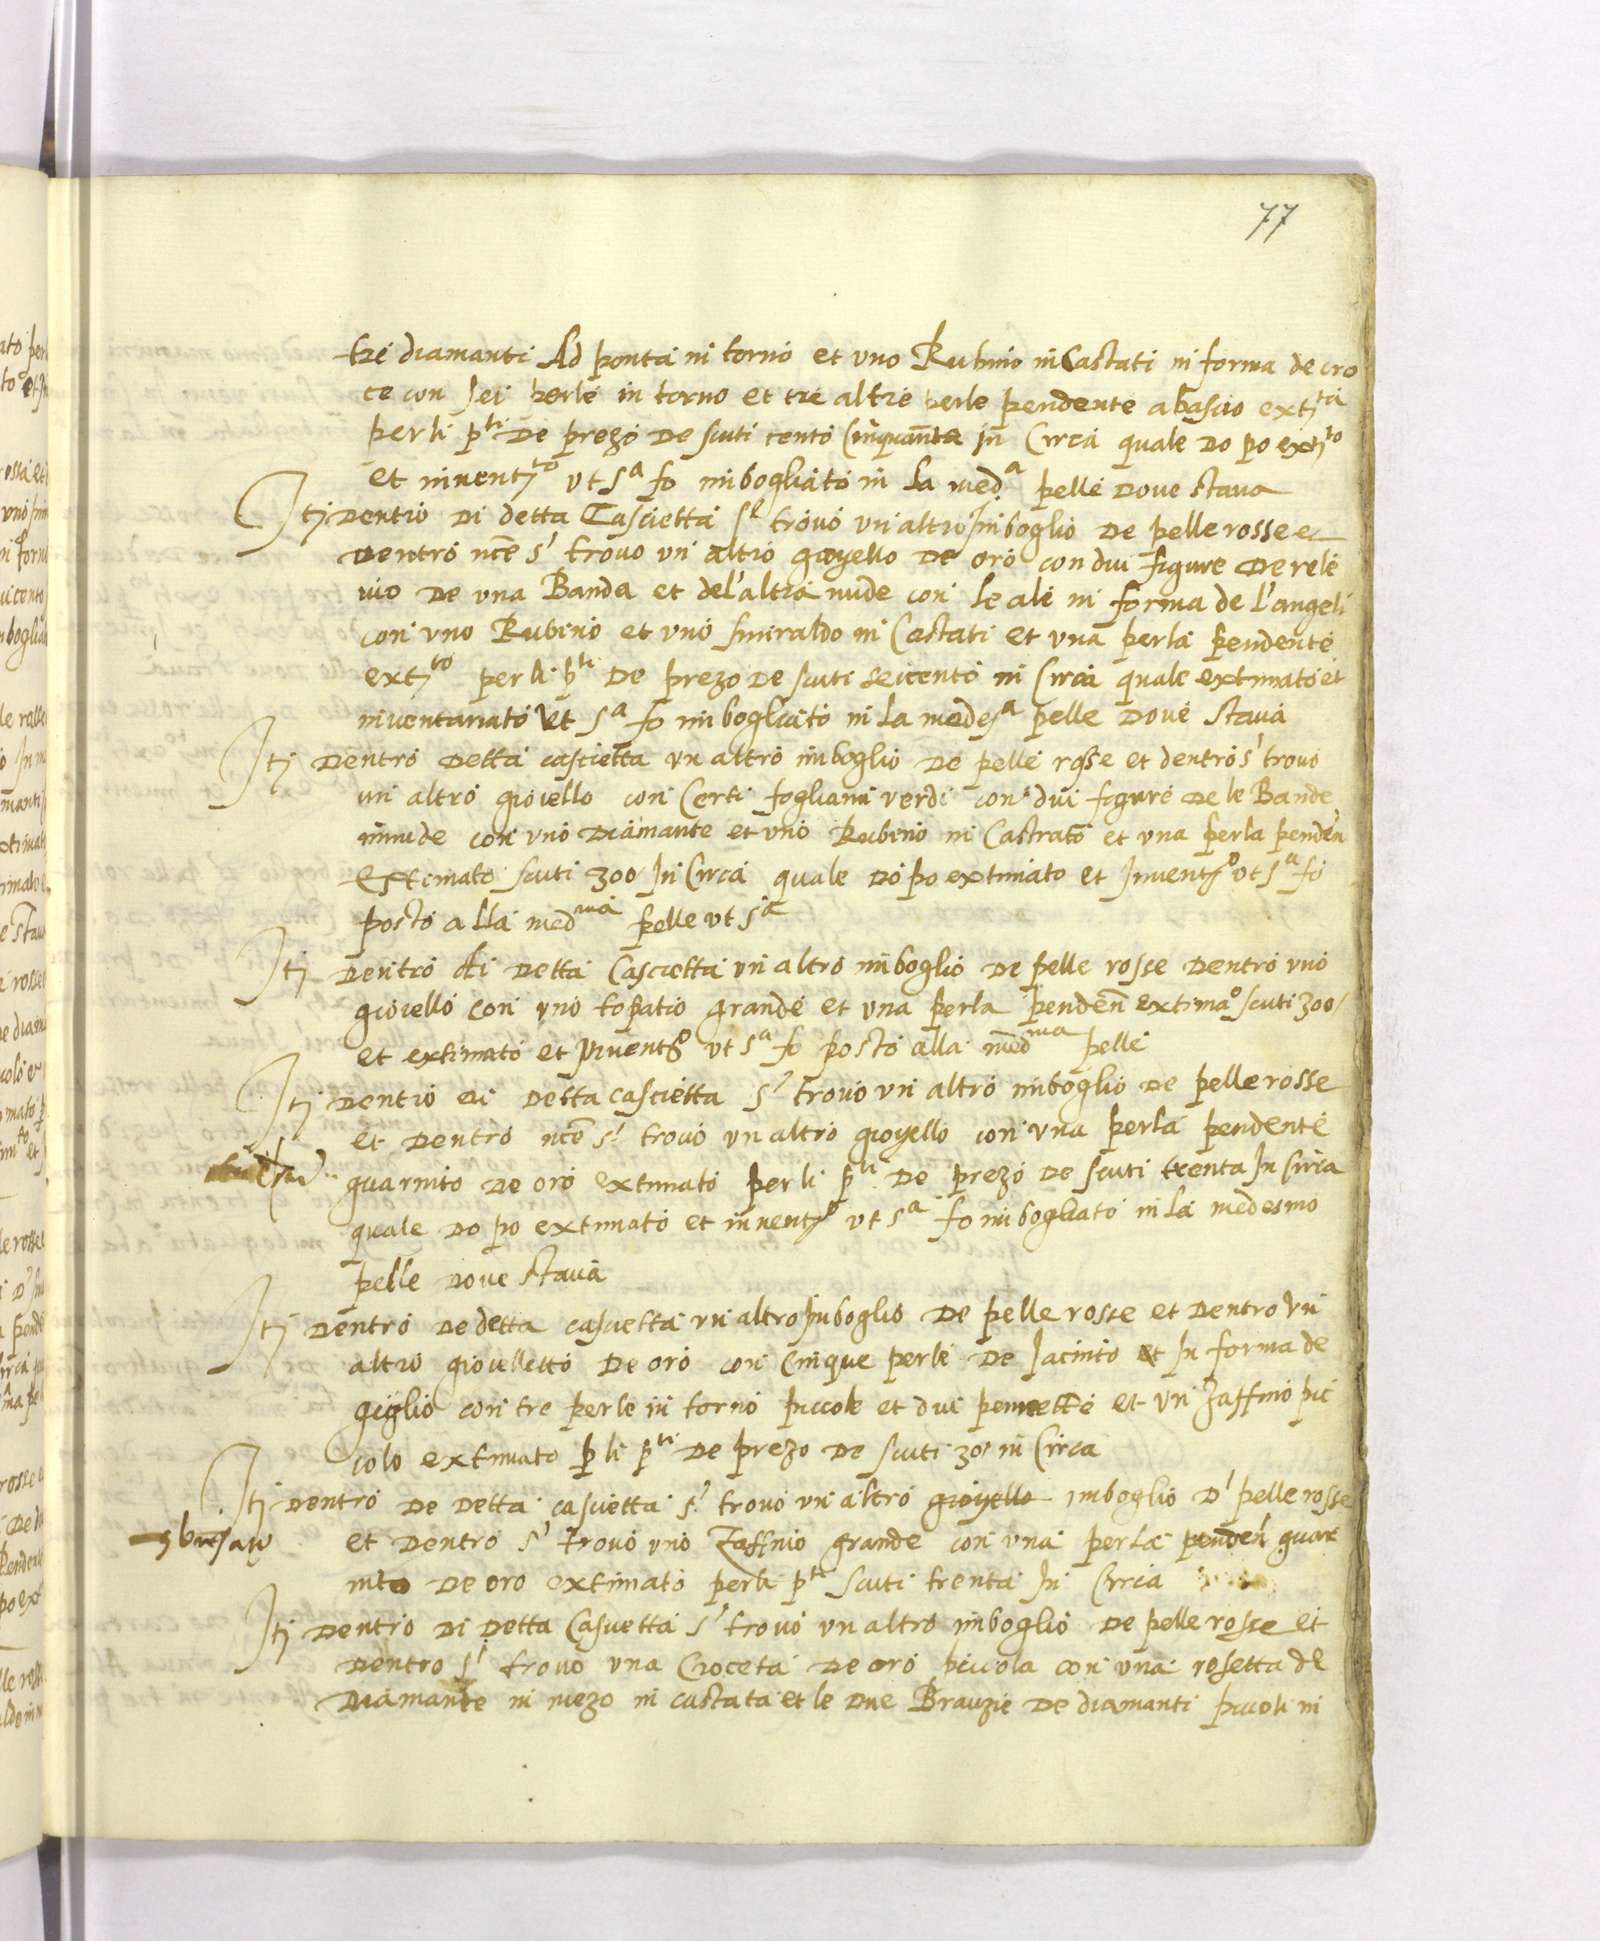 77
tre diamanti Ad ponta in torno et uno Rubino in Castati in forma de cro
ce con sei perle in torno et tre altre perle pendente abascio ext.ta
per li p.ti De prezo De scuti cento Cinquanta in Circa quale Do po ext.to
et invent.to ut s.a fo imbogliato in la med.a pelle Dove stava
Iti Dentro Di detta Cascietta s' trovo un altro Imboglio De pelle rosse et
Dentro nce s' trovo un altro gioyello De oro con dui figure De rele
vio De una Banda et del'altra nude con le ale in forma de l'angeli
con uno Rubino et uno smiraldo in Castati et una perla pendente
ext.to per li p.ti De prezo De scuti seicento in Circa quale extimato et
inventariato ut s.a fo imbogliato in la medes.a pelle Dove stava
Iti Dentro Detta cascietta un altro imboglio De pelle rosse et dentro s' trovo
un altro giovello con Certi fogliami verdi con dui figure De le Bande
innude con uno Diamante et uno Rubino in Castrato et una perla penden
Extimato scuti 300 In Circa quale Do po extimato et Invent.o ut s.a fo
posto alla med.ma pelle ut s.a
Iti Dentro di Detta Cascietta un altro imboglio De pelle rosse Dentro uno
giovello con uno topatio grande et una perla penden extima.o scuti 300/
et extimato et Invent.o ut s.a fo posto alla med.ma pelle
Iti Dentro di Detta cascietta s' trovo un altro imboglio De pelle rosse
et Dentro nce s' trovo un altro gioyello con una perla pendente
guarnito De oro extimato per li p.ti De prezo De scuti trenta In Circa
quale Do po extimato et invent.o ut s.a fo imbogliato in la medesmo
pelle Dove stava
Iti Dentro De detta cascietta un altro Inboglio De pelle rosse et Dentro un
altro giovelletto De oro con Cinque perle De Jacinto et In forma de
giglio con tre perle in torno piccole et dui pennette et un Zaffino pic
colo extimato p li p.ti De prezo De scuti 30 in Circa
Iti Dentro De Detta cascietta s' trovo un altro gioyello imboglio D' pelle rosse
et Dentro s' trovo uno Zaffino grande con una perla penden guar
nito De oro extimato per li p.ti scuti trenta In Circa
Iti Dentro Di Detta Cascietta s' trovo un altro imboglio De pelle rosse et
Dentro s' trovo una Croceta De oro piccola con una rosetta de
Diamante in mezo in castata et le Due Brauzie De diamanti piccoli in